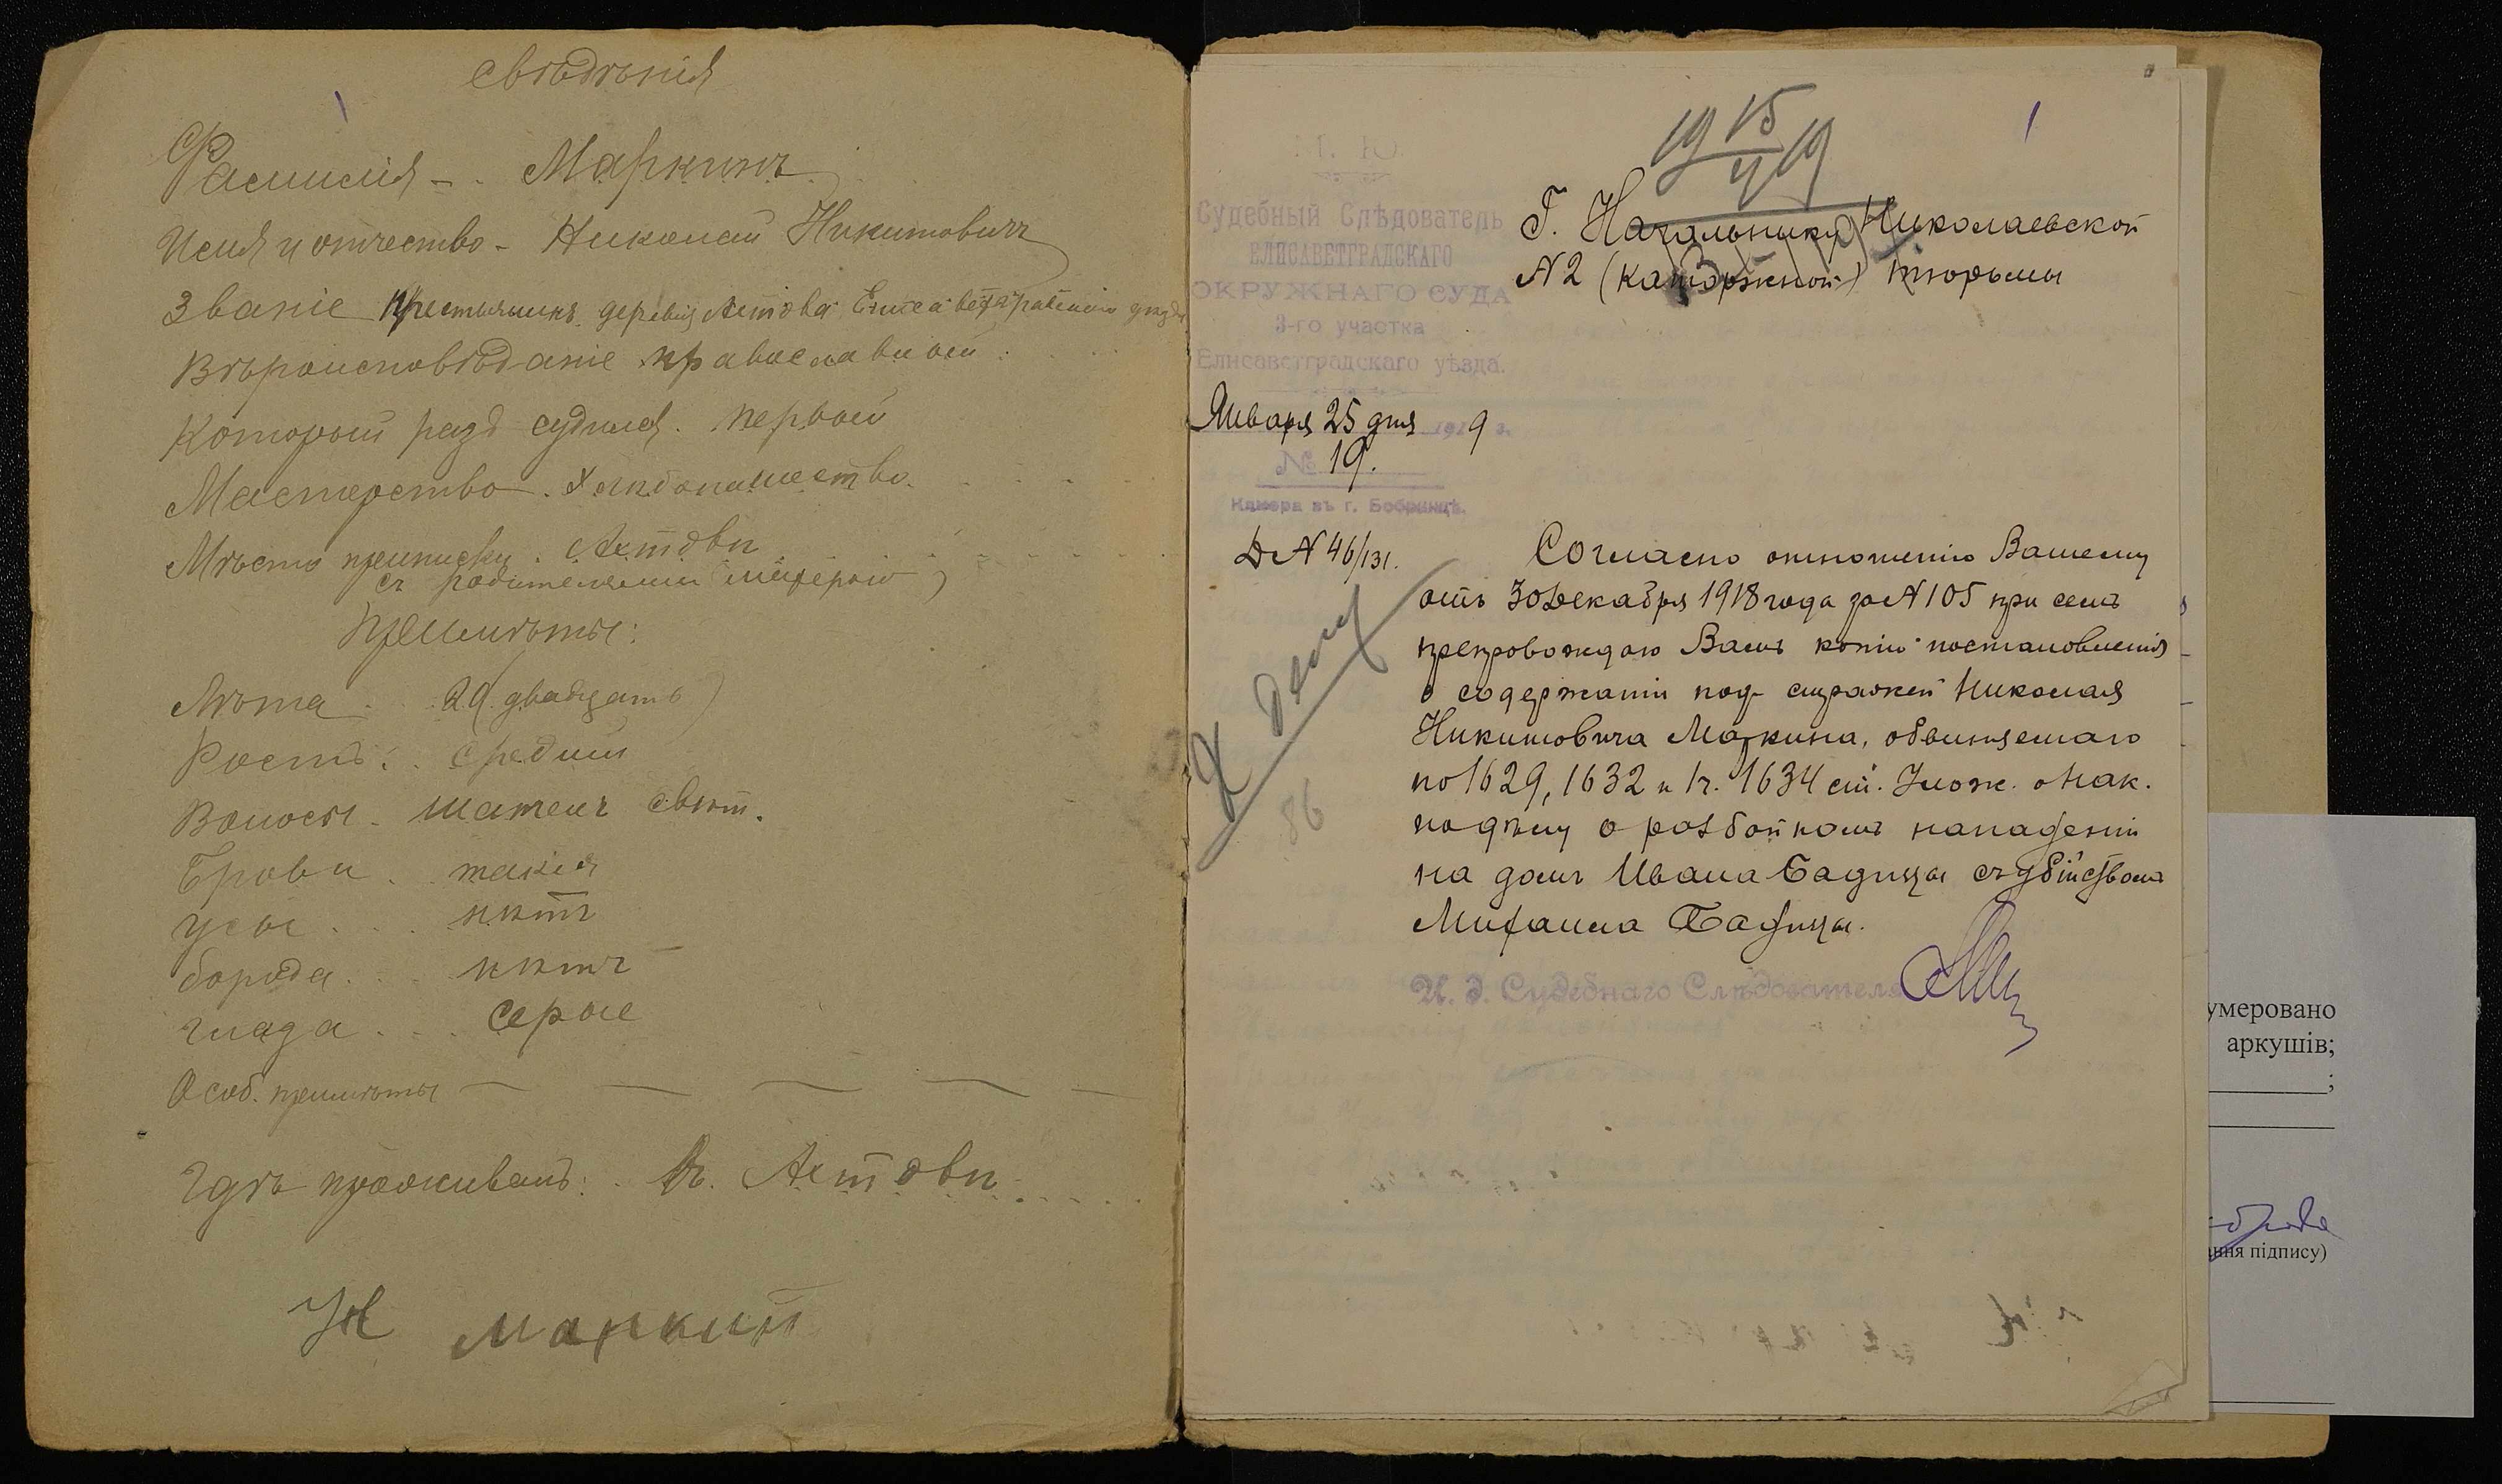 свѣдѣнія
Фамилія - Маркинъ
Имя и отчество - Николай Никитовичъ
Званіе крестьянинъ деревни Аѕтова Елисаветградскаго уѣзда
Вѣроисповѣданіе православной
Который разъ судился. первый
Мастерство. Хлѣбопашество.
Мѣсто приписки.
съ родителями матерью
Примѣты:
Лѣта 20 (двадцать)
Ростъ: средній
Волосы - шатенъ свѣт.
Брови. такія
усы нѣтъ
борода нѣтъ
глаза серые
Особ. примѣты
Гдѣ проживалъ: въ
Н Маркин
1
19 15/4 19
М. Ю.
Судебный Слѣдователь
ЕЛИСАВЕТГРАДСКАГО
ОКРУЖНАГО СУДА
3-го участка
Елисаветградскаго уѣзда.
Января 25 дня 1919 г.
№ 19.
Камера въ г. Бобринцѣ.
Д № 46/131.
Г. Начальнику Николаевской
№2 (каторжной) тюрьмы
К делу
86
Согласно отношенію Вашему
отъ 30 Декабря 1918 года за №105 при семъ
препровождаю Вамъ копію постановленія
о содержаніи под стражей Николая
Никитовича Маркина, обвиняемаго
по 1629, 1632 и 1 ч. 1634 ст. Улож. о Нак.
по дѣлу о разбойномъ нападеніи
на домъ Ивана Бадицы съ убійствомъ
Михаила Бадицы.
И. д. Судебнаго Слѣдователя
умеровано
аркушів;
;
ання підпису)